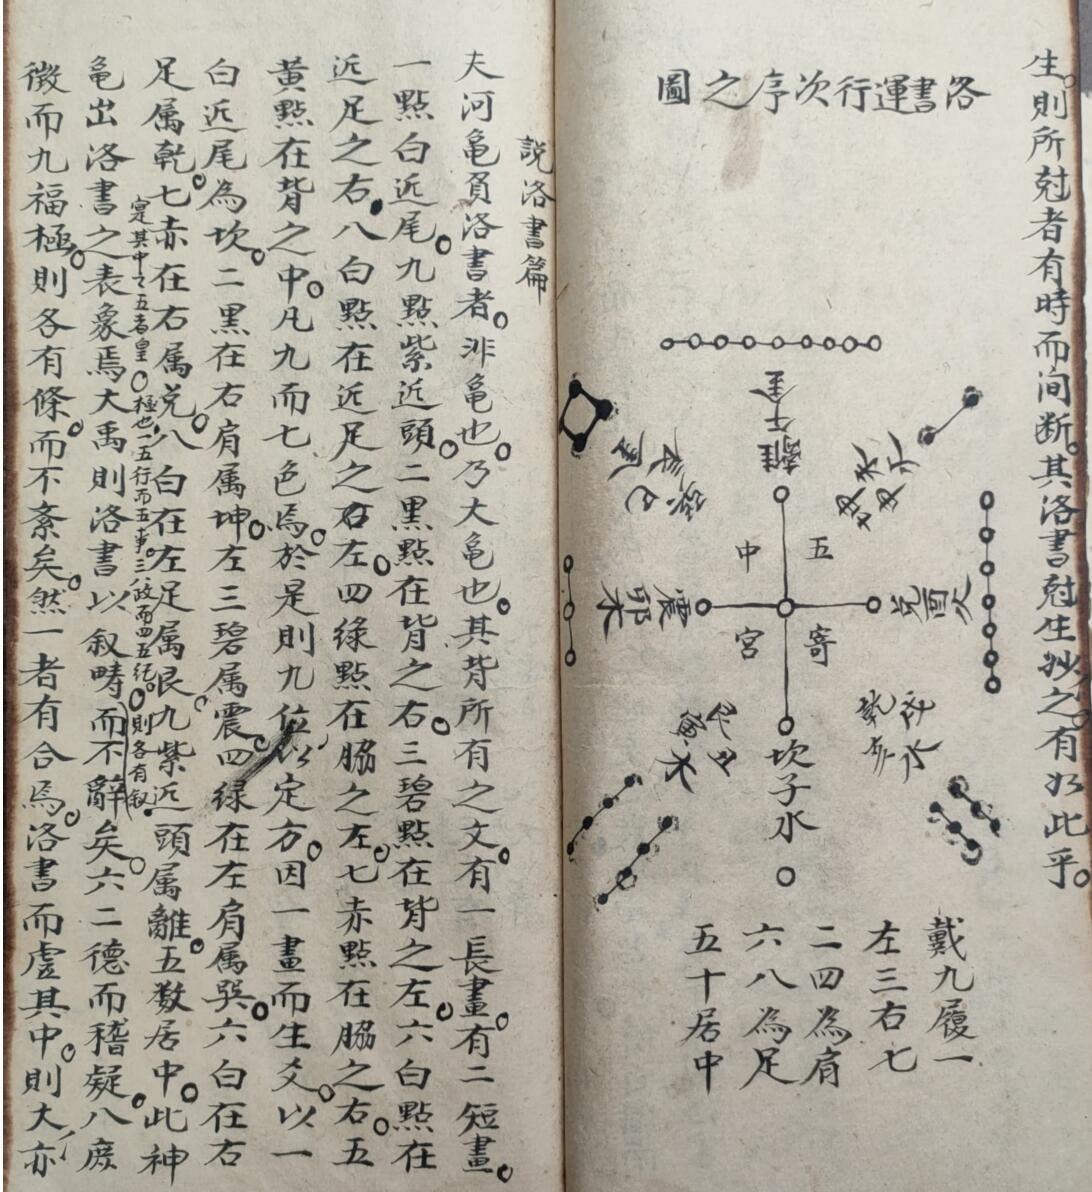 生則所尅者有時而间断其洛書尅生抄之有如此乎
洛書運行次序之圖
離午金
坤未
巽巳
中五
寄宮
震卯木
兌酉火
乾亥
戌水
艮丑
寅木
坎子水
戴九履一
左三右七
二四為肩
六八為足
五十居中
説洛書篇
夫河亀負洛書者非亀也乃大亀也其背所有之文有一長畫有二短畫
一點白近尾九點紫近頭二黒點在背之右三碧點在背之左六白點在
近足之右八白點在近足之右左四緑點在脇之左七赤點在脇之右五
黄點在背之中凡九而七色焉於是則九位以定方因一畫而生爻以一
白近尾為坎二黒在右肩属坤左三碧属震四緑在左肩属巽六白在右
足属乾七赤在右属兌八白在左足属艮九紫近頭属離五数居中此神
寔其中之五者皇極也一五行而五事三八政而四五纪則各有叙
亀出洛書之表象焉大禹則洛書以叙疇而不辭矣六二德而稽疑八庶
徵而九福極則各有條而不紊矣然一者有合焉洛書而虚其中則大亦